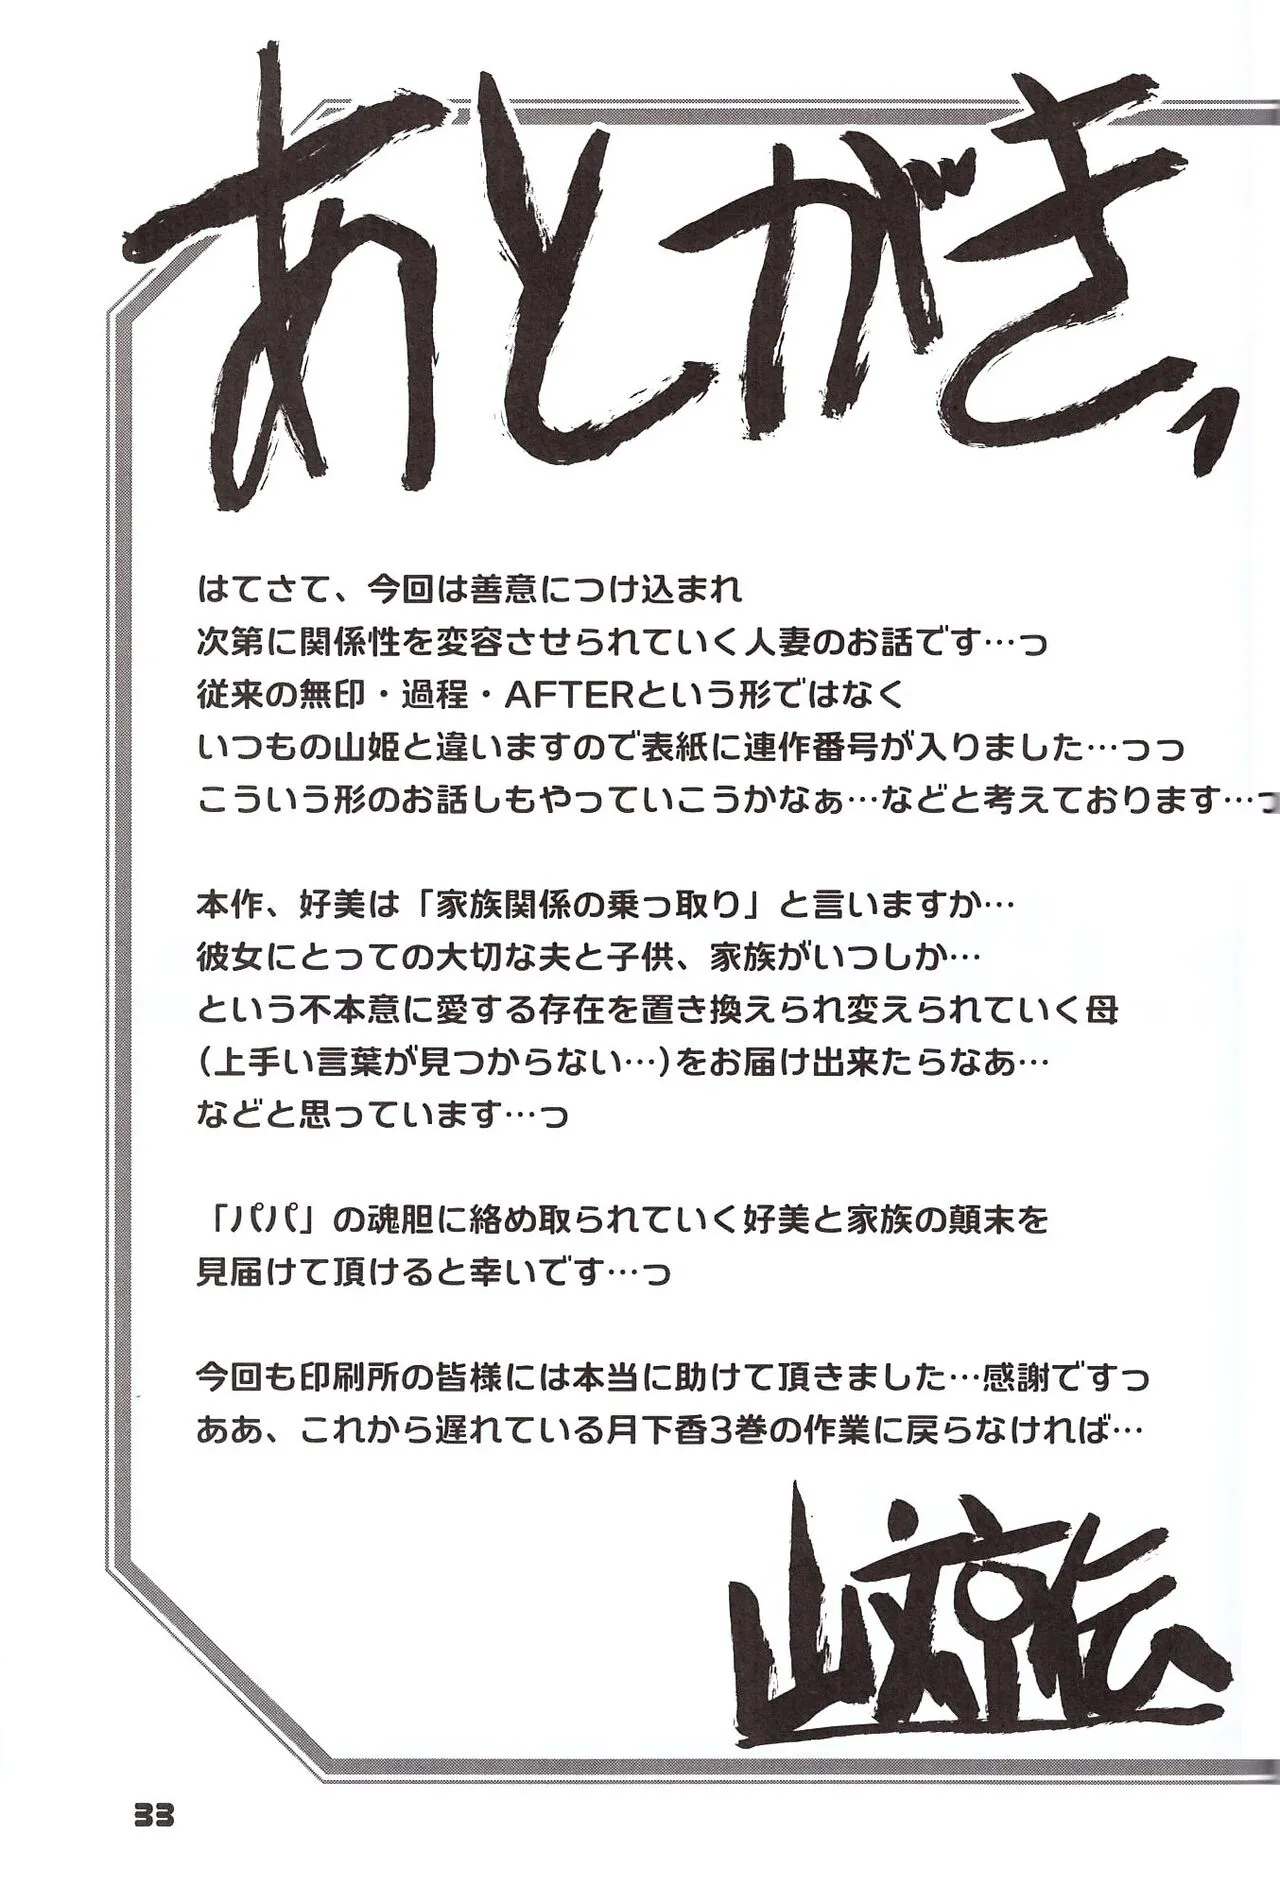 あとがき、
はてさて、今回は善意につけ込まれ
次第に関係性を変容させられていく人妻のお話です…っ
従来の無印・過程・AFTERという形ではなく
いつもの山姫と違いますので表紙に連作番号が入りました…っっ
こういう形のお話しもやっていこうかなぁ…などと考えております…っ
本作、好美は「家族関係の乗っ取り」と言いますか…
彼女にとっての大切な夫と子供、家族がいつしか…
という不本意に愛する存在を置き換えられ変えられていく母
(上手い言葉が見つからない…)をお届け出来たらなあ…
などと思っています…っ
「パパ」の魂胆に絡め取られていく好美と家族の顛末を
見届けて頂けると幸いです…っ
今回も印刷所の皆様には本当に助けて頂きました…感謝ですっ
ああ、これから遅れている月下香3巻の作業に戻らなければ…
33